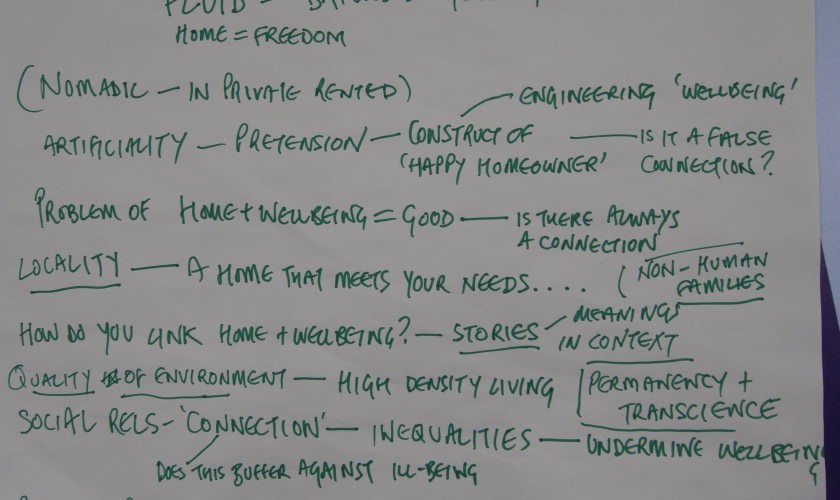 FLUID =
HOME = FREEDOM
(NOMADIC — IN PRIVATE RENTED)
ENGINEERING 'WELLBEING'
ARTIFICIALITY — PRETENSION — CONSTRUCT OF — IS IT A FALSE
'HAPPY HOMEOWNER' CONNECTION?
PROBLEM OF HOME + WELLBEING = GOOD — IS THERE ALWAYS
A CONNECTION
LOCALITY — A HOME THAT MEETS YOUR NEEDS.... (NON-HUMAN
FAMILIES
HOW DO YOU LINK HOME + WELLBEING? — STORIES — MEANINGS
IN CONTEXT
QUALITY OF ENVIRONMENT — HIGH DENSITY LIVING PERMANENCY +
TRANSCIENCE
SOCIAL RELS - 'CONNECTION' — INEQUALITIES — UNDERMINE WELLBEING
DOES THIS BUFFER AGAINST ILL-BEING